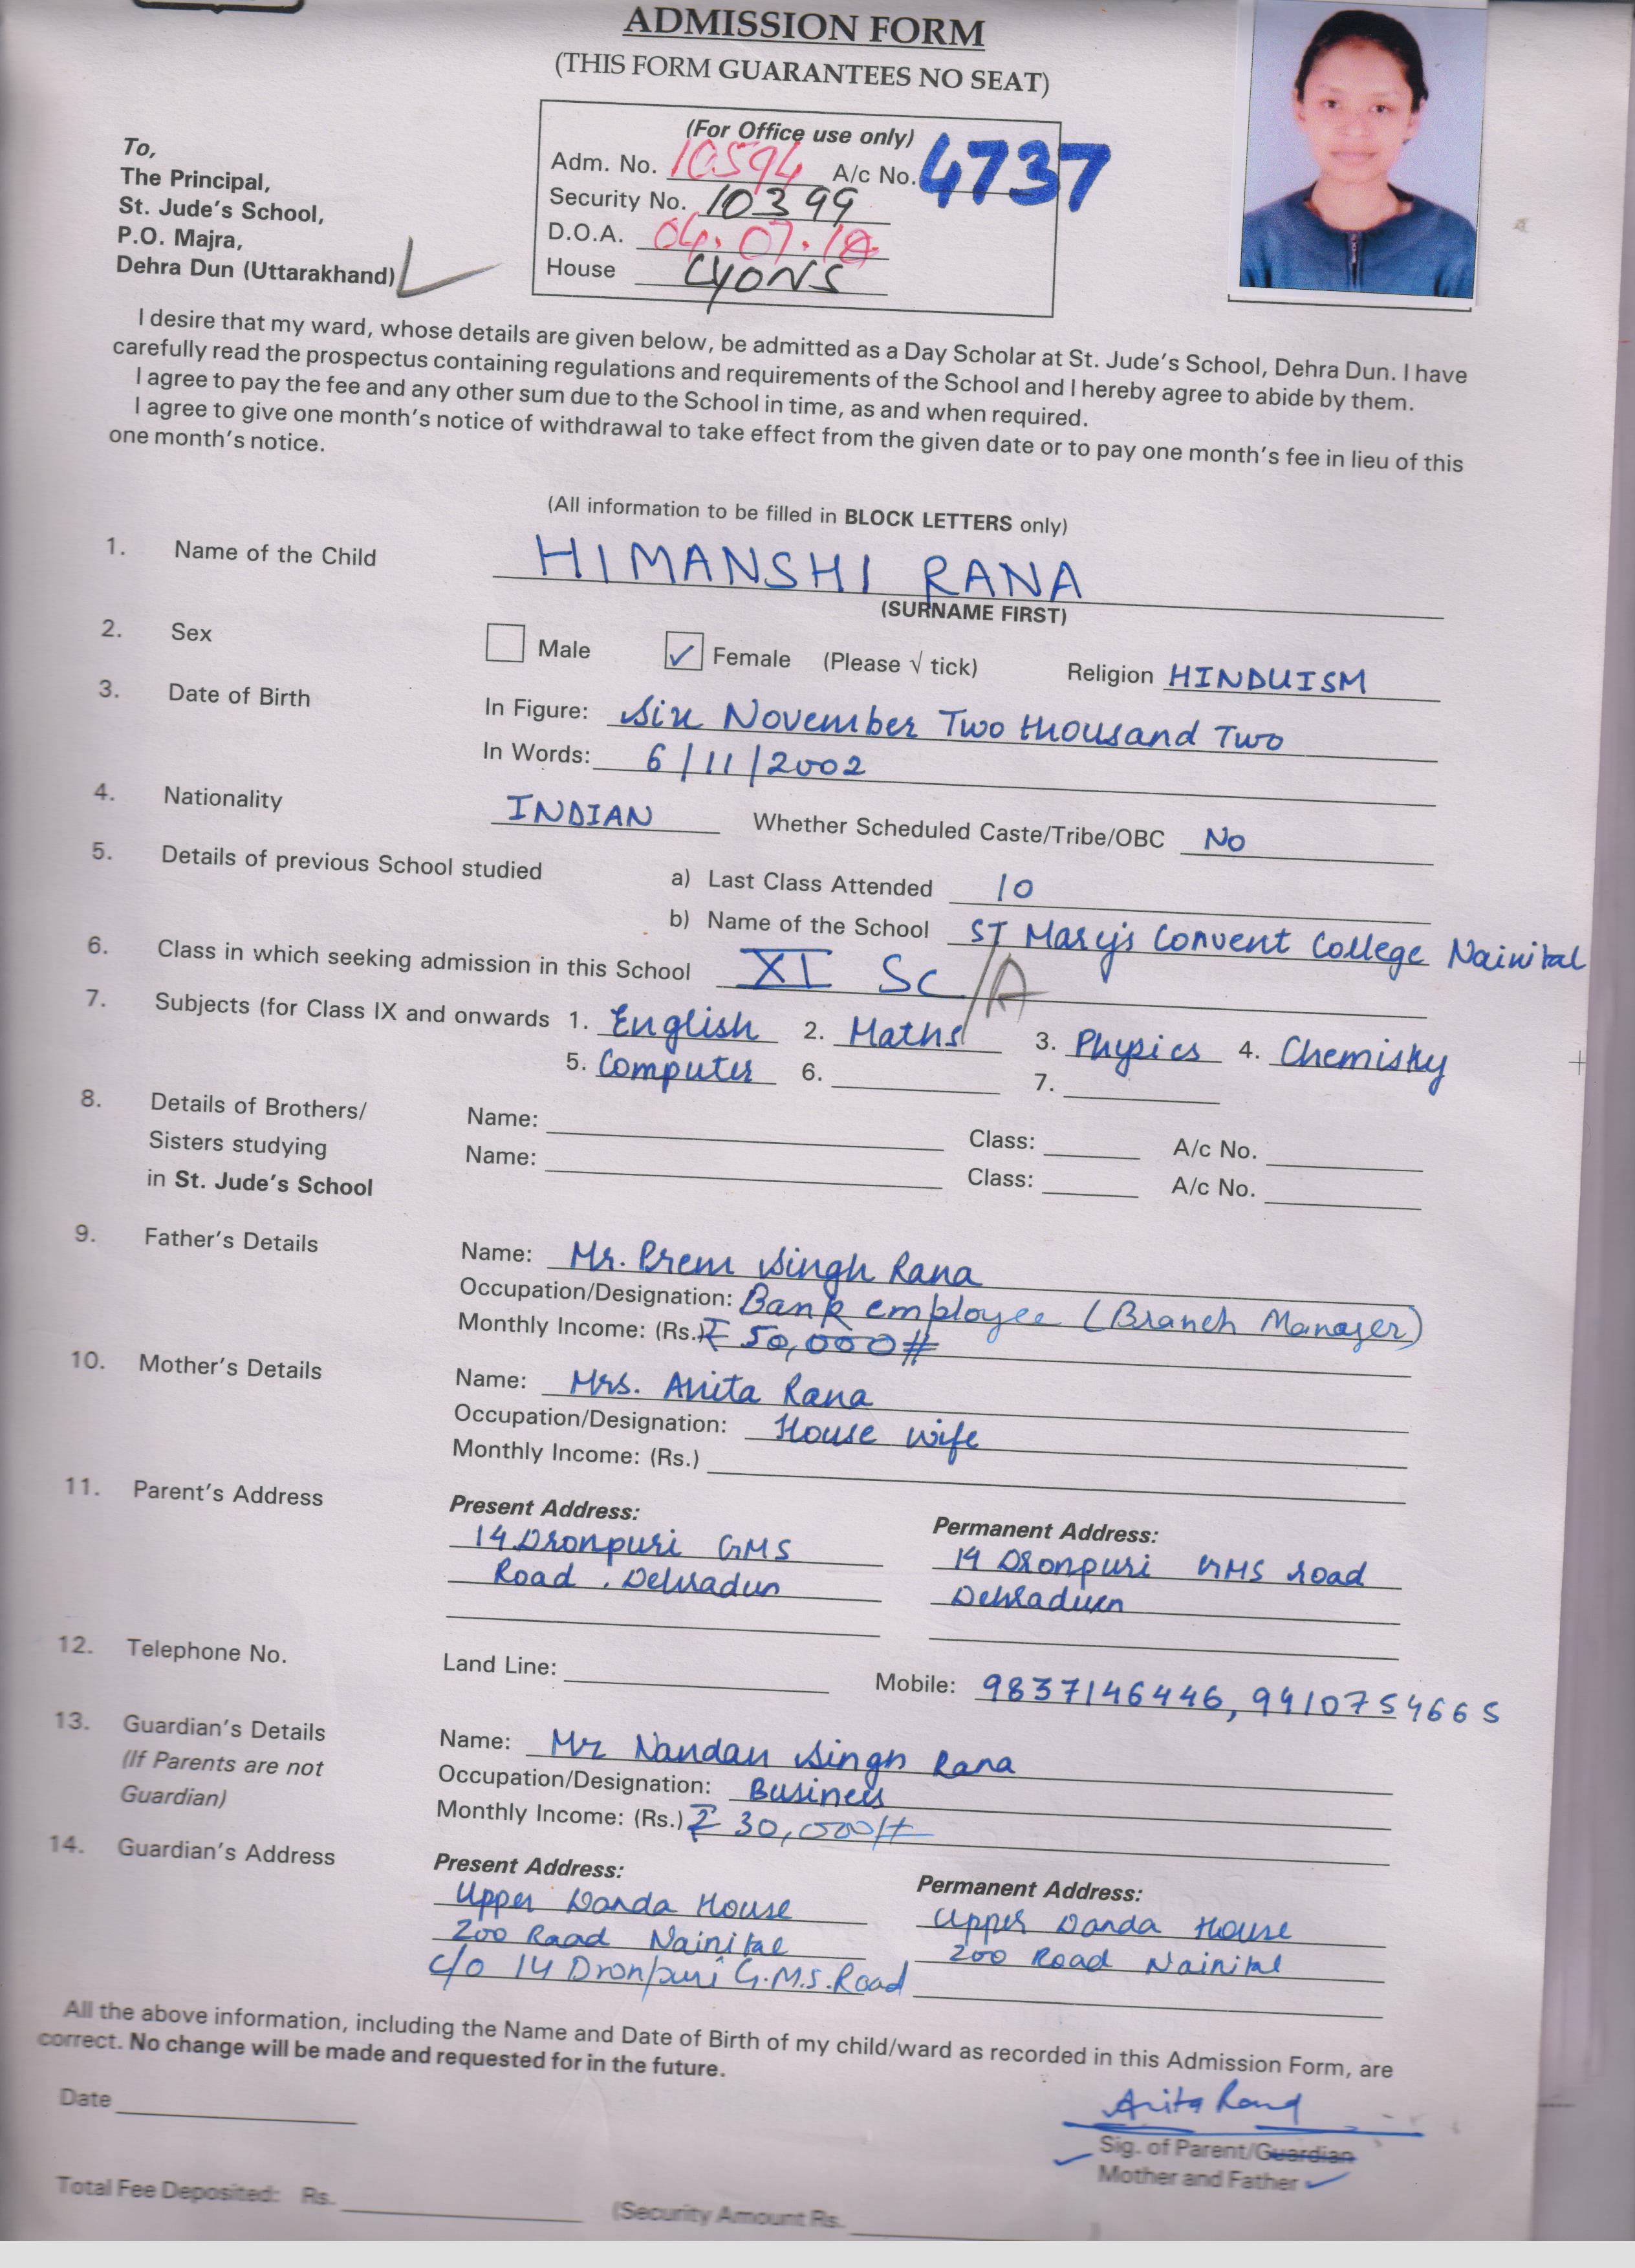 ADMISSION FORM
(THIS FORM GUARANTEES NO SEAT)
To,
The Principal,
St. Jude's School,
P.O. Majra,
Dehra Dun (Uttarakhand)
(For Office use only)
Adm. No. 10594 A/c No. 4737
Security No. 10399
D.O.A. 04.07.18
House LYONS
I desire that my ward, whose details are given below, be admitted as a Day Scholar at St. Jude's School, Dehra Dun. I have
carefully read the prospectus containing regulations and requirements of the School and I hereby agree to abide by them.
I agree to pay the fee and any other sum due to the School in time, as and when required.
I agree to give one month's notice of withdrawal to take effect from the given date or to pay one month's fee in lieu of this
one month's notice.
(All information to be filled in BLOCK LETTERS only)
1. Name of the Child HIMANSHI RANA
(SURNAME FIRST)
2. Sex Male ✓ Female (Please √ tick) Religion HINDUISM
3. Date of Birth In Figure: Six November Two thousand Two
In Words: 6/11/2002
4. Nationality INDIAN Whether Scheduled Caste/Tribe/OBC No
5. Details of previous School studied a) Last Class Attended 10
b) Name of the School ST Mary's Convent College Nainital
6. Class in which seeking admission in this School XI Sc/A
7. Subjects (for Class IX and onwards 1. English 2. Maths 3. Physics 4. Chemistry
5. Computer 6. 7.
8. Details of Brothers/ Name: Class: A/c No.
Sisters studying Name: Class: A/c No.
in St. Jude's School
9. Father's Details Name: Mr. Prem Singh Rana
Occupation/Designation: Bank employee (Branch Manager)
Monthly Income: (Rs.) ₹ 50,000#
10. Mother's Details Name: Mrs. Anita Rana
Occupation/Designation: House wife
Monthly Income: (Rs.)
11. Parent's Address Present Address: Permanent Address:
14 Dronpuri GMS 14 Dronpuri GMS road
Road . Dehradun Dehraduen
12. Telephone No. Land Line: Mobile: 9837146446, 9910754665
13. Guardian's Details Name: Mr Nandan Singh Rana
(If Parents are not Occupation/Designation: Business
Guardian) Monthly Income: (Rs.) ₹ 30,000/#
14. Guardian's Address Present Address: Permanent Address:
Upper Danda House Upper Danda House
Zoo Road Nainital Zoo Road Nainital
c/o 14 Dronpuri G.M.S. Road
All the above information, including the Name and Date of Birth of my child/ward as recorded in this Admission Form, are
correct. No change will be made and requested for in the future.
Date Anita Rana
Sig. of Parent/Guardian
Mother and Father
Total Fee Deposited: Rs. (Security Amount Rs. )